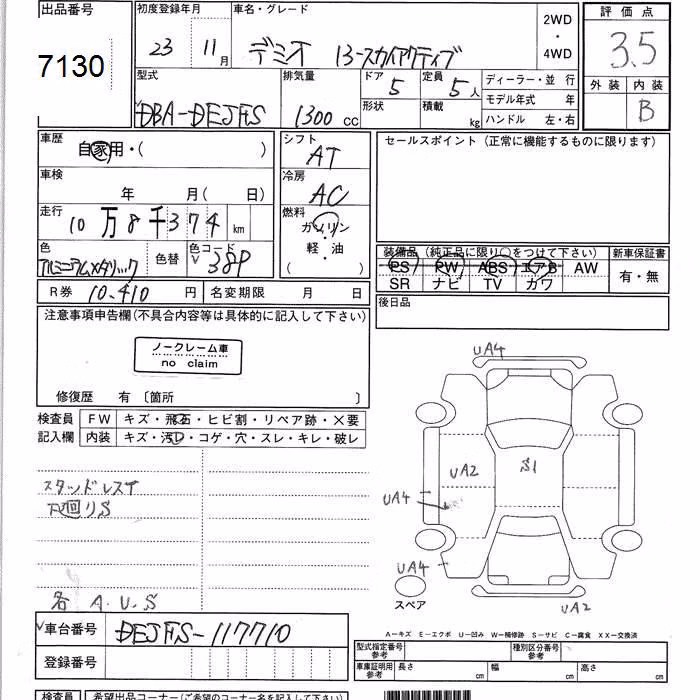 出品番号 初度登録年月 車名・グレード 2WD ・ 4WD 評価点
7130 23 11月 デミオ 13-スカイアクティブ 3.5
型式 排気量 ドア 定員 ディーラー・並行 外装 内装
DBA-DEJFS 1300cc 5 5人 モデル年式 年 B
形状 積載 kg ハンドル 左・右
車歴 自家用・( ) シフト AT セールスポイント(正常に機能するものに限ります)
車検 年 月( 日) 冷房 AC
走行 10万8千374km 燃料 ガソリン
軽・油
( )
色 アルミニアムメタリック 色替 色コード 38P
装備品(純正品に限り○をつけて下さい) 新車保証書
PS PW ABS エアB AW 有・無
SR ナビ TV カワ
R券 10.410円 名変期限 月 日 後日品
注意事項申告欄(不具合内容等は具体的に記入して下さい)
ノークレーム車
no claim
修復歴 有 〔箇所 〕
検査員 FW キズ・飛石・ヒビ割・リペア跡・×要
記入欄 内装 キズ・汚れ・コゲ・穴・スレ・キレ・破レ
UA4
UA2 S1
UA4
スタッドレス
下回りS
UA4
スペア
UA2
各 A.U.S
車台番号 DEJFS-117710
登録番号
A−キズ E−エクボ U−凹み W−補修跡 S−サビ C−腐食 XX−交換済
型式指定番号 参考 種別区分番号 参考
車庫証明用 参考 長さ cm 幅 cm 高さ cm
検査員 希望出品コーナー(ご希望のコーナー名を記入して下さい)